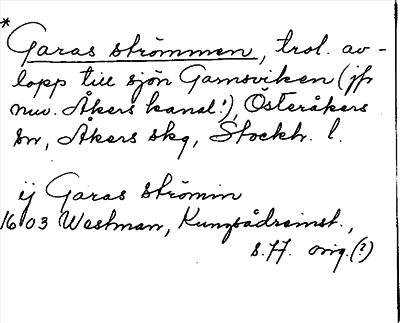 *
Garas strömmen, trol. av-
lopp till sjön Garnsviken (jfr
nuv. Åkers kanal!), Österåkers
sn, Åkers skg, Stockh. l.
ij Garas strömin
1603 Westman, Kungsådreinst.,
s. 77. orig. (?)